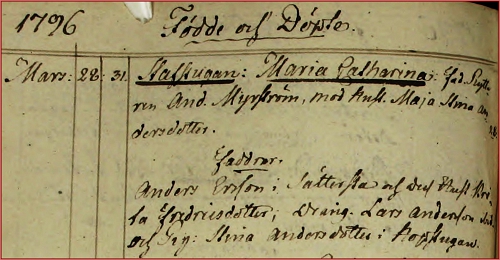 1796 Födde och Döpte.
Mars: 28: 31. Hassugan: Maria Catharina; fad. Rytta-
ren And. Myrström, mod. Hust. Maja Stina An-
dersdotter.
Faddrar.
Anders Ersson i Sättersta och dess Hust. Bri-
ta Fredricsdotter; Dräng. Lars Anderson
och Pig: Stina Andersdotter i Hassugan.